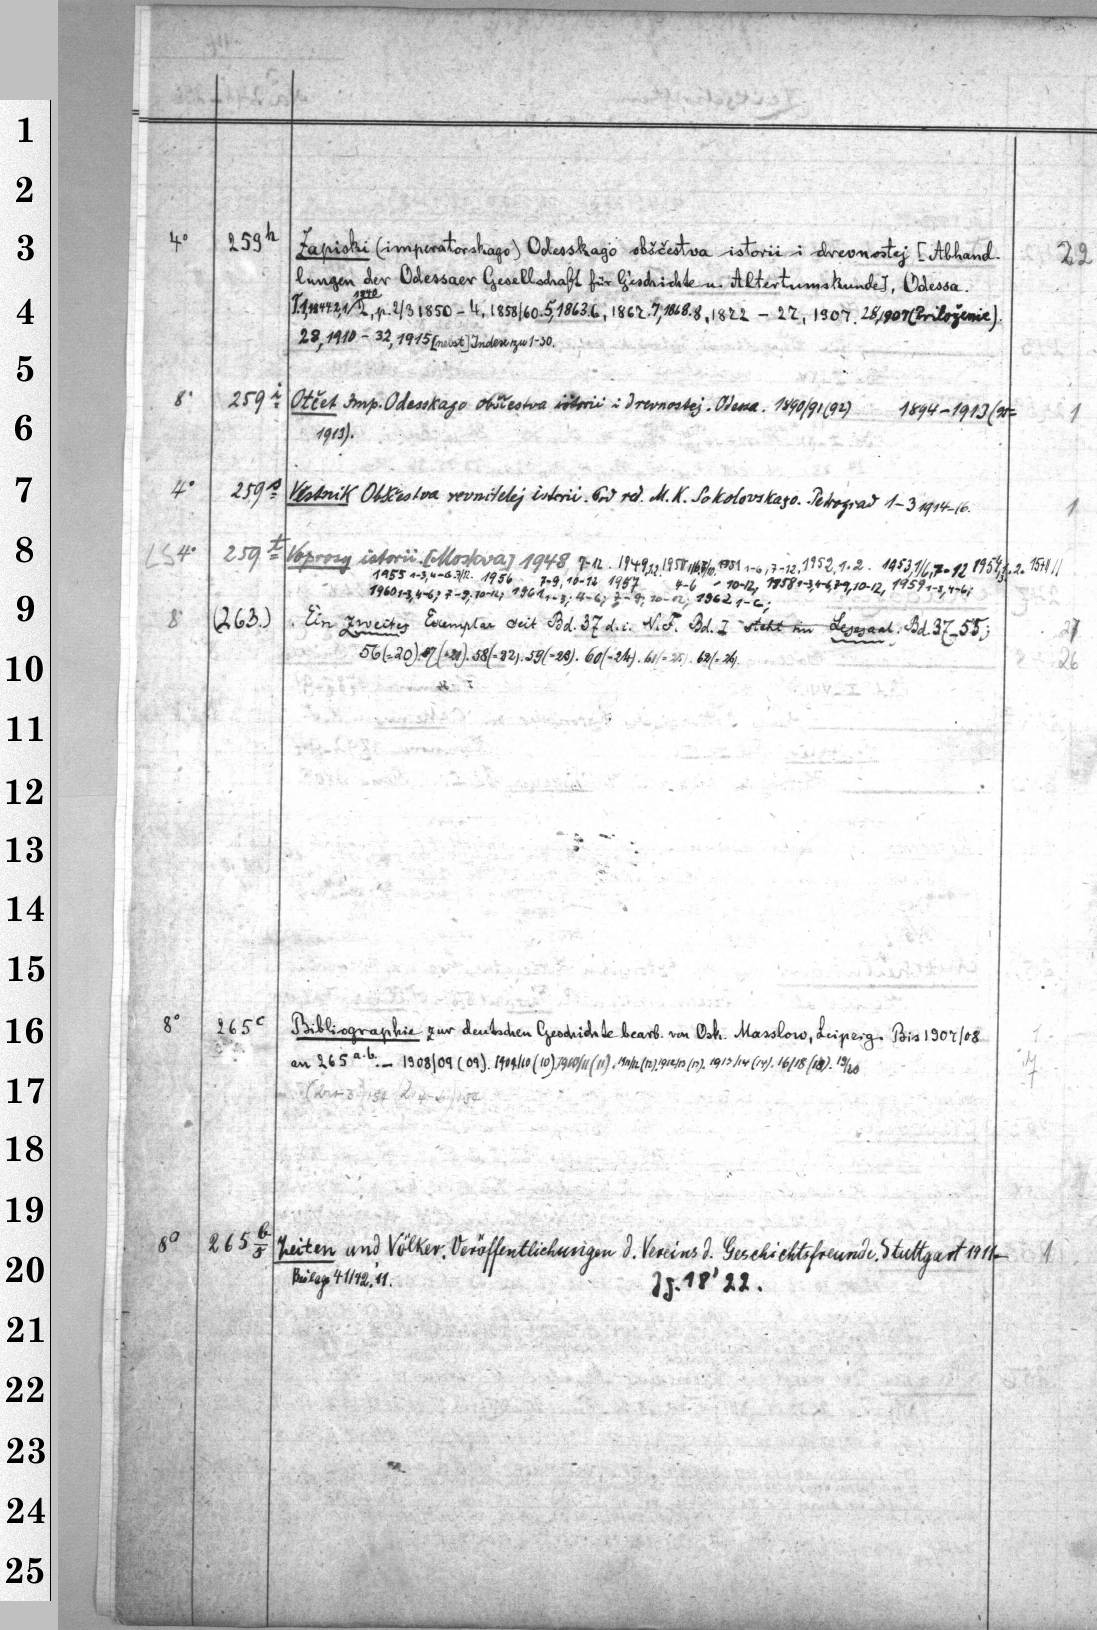 1
2
3
4
5
6
7
8
9
10
11
12
13
14
15
16
17
18
19
20
21
22
23
24
25
4° 259h Zapiski (imperatorskago) Odesskago obščestva istorii i drevnostej [Abhand- 22
lungen der Odessaer Gesellschaft für Geschichte u. Altertumskunde], Odessa.
p. 2/3 1850 – 4, 1858/60. 5, 1863. 6, 1867. 7, 1868. 8, 1872 – 27, 1907. 28, 1907 (Priloženie).
28, 1910 – 32, 1915 [nebst] Index zu 1-30.
8° 259i Otčet Imp. Odesskago obščestva istorii i drevnostej. Odessa. 1890/91 (92) 1894–1913 (95= 1
1913).
4° 259s Vestnik Obščestva revnitelej istorii. Pod red. M. K. Sokolovskago. Petrograd 1–3 1914–16. 1
LS 4° 259t Voprosy istorii. [Moskva] 1948, 7-12. 1949, 1951 1-6, 7-12, 1952, 1. 2. 1953, 1/6, 7-12 1954,
1955 1-3, 1956 7-9, 10-12 1957 4-6 10-12, 1958 1-3, 4-6, 7-9, 10-12, 1959 1-3, 4-6;
1960 1-3, 4-6; 7-9; 10-12; 1961 1-3; 4-6; 7-9; 10-12; 1962 1-6;
8° (263.) . Ein zweites Exemplar seit Bd. 37 d. i. N. F. Bd. I steht im Lesesaal: Bd. 37–55; 27
56 (=20). 57 (=21). 58 (=22). 59 (=23). 60 (=24). 61 (=25). 62 (=26). 26
8° 265c Bibliographie zur deutschen Geschichte bearb. von Osk. Masslow, Leipzig. Bis 1907/08 1
an 265 a.b. – 1908/09 (09). 1909/10 (10), 1910/11 (11), 1911/12 (12), 1912/13 (13), 1913/14 (14). 16/18 (18). 19/20
8° 265 b/5 Zeiten und Völker. Veröffentlichungen d. Vereins d. Geschichtsfreunde. Stuttgart 1911– 1
Beilage 41/42. '11. Jg. 18' 22.